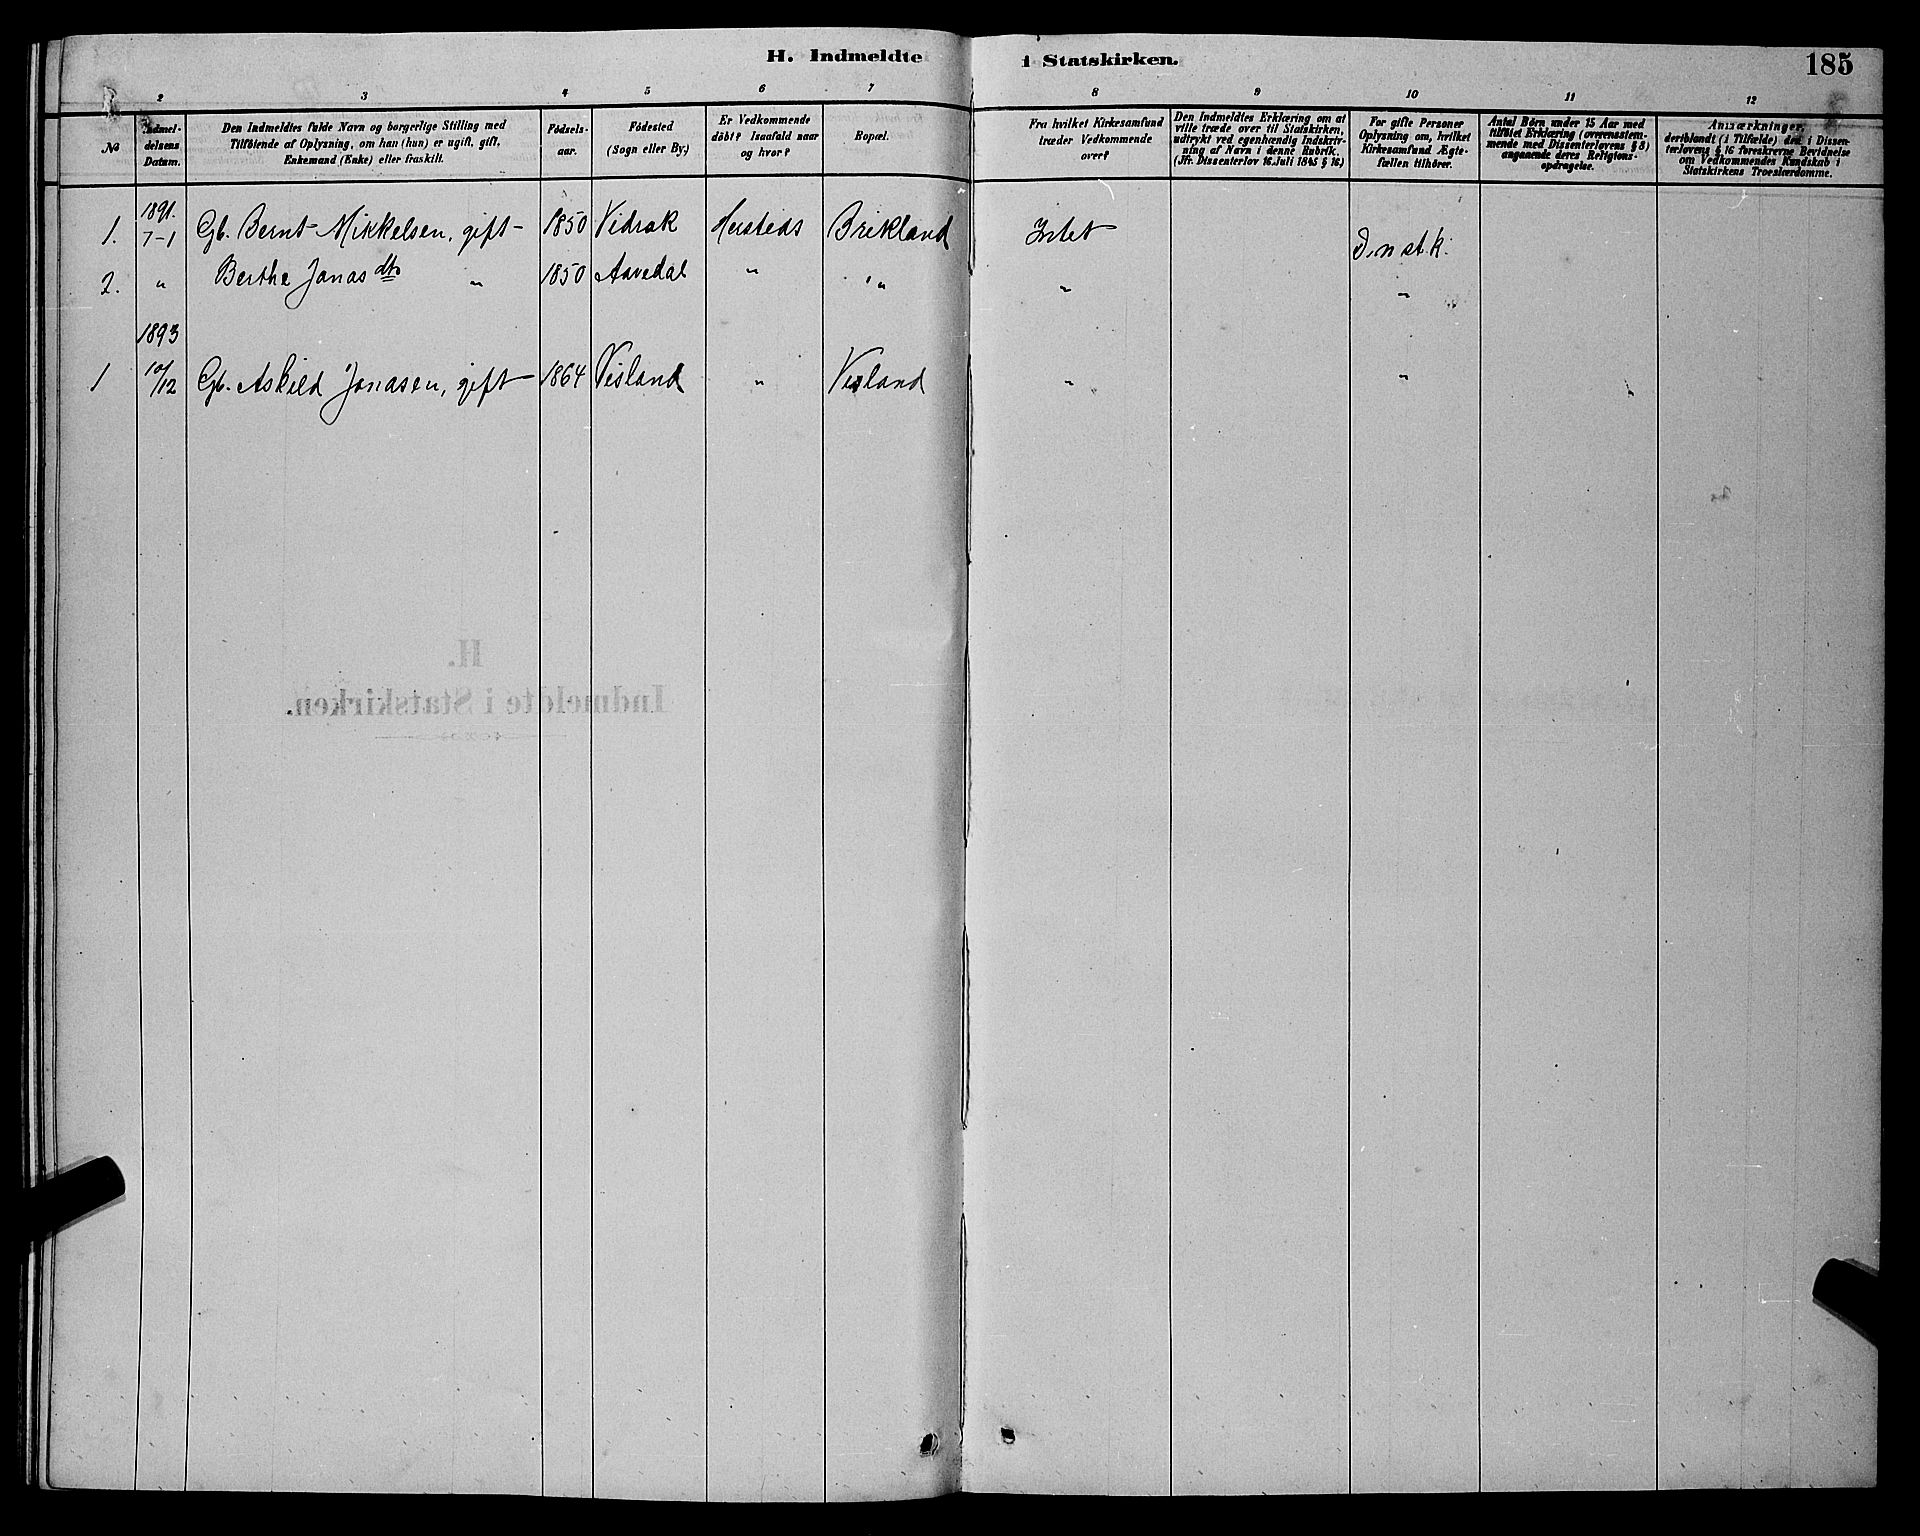 H. Indmeldte i Statskirken. 185
2 3 4 5 6 7 8 9 10 11 12
№
Indmel-
delsens
Datum.
Den Indmeldtes fulde Navn og borgerlige Stilling med
Tilföiende af Oplysning, om han (hun) er ugift, gift,
Enkemand (Enke) eller fraskilt.
Födsels-
aar.
Födested
(Sogn eller By.)
Er Vedkommende
döbt? Isaafald naar
og hvor?
Bopæl.
Fra hvilket Kirkesamfund
træder Vedkommende
over?
Den Indmeldtes Erklæring om at
ville træde over til Statskirken,
udtrykt ved egenhændig Indskriv-
ning af Navn i denne Rubrik.
(Jfr. Dissenterlov 16. Juli 1845 § 16.)
For gifte Personer
Oplysning om, hvilket
Kirkesamfund Ægte-
fællen tilhörer.
Antal Börn under 15 Aar med
tilföiet Erklæring (overensstem-
mende med Dissenterlovens § 8)
angaaende deres Religions-
opdragelse.
Anmærkninger,
deriblandt (i Tilfælde) den i Dissen-
terlovens § 16 foreskrevne Bevidnelse
om Vedkommendes Kundskab i
Statskirkens Troeslærdomme.
1891.
1. 7-1 Gb. Bernt Mikkelsen, gift 1850 Vidrak Birkland Intet D. n st. k.
2. " Berthe Jonasdtr " 1850 Aavedal " " " "
1893
1 10/12 Gb. Askild Jonasen, gift 1864 Visland " Visland " "
H.
Indmeldte i Statskirken.